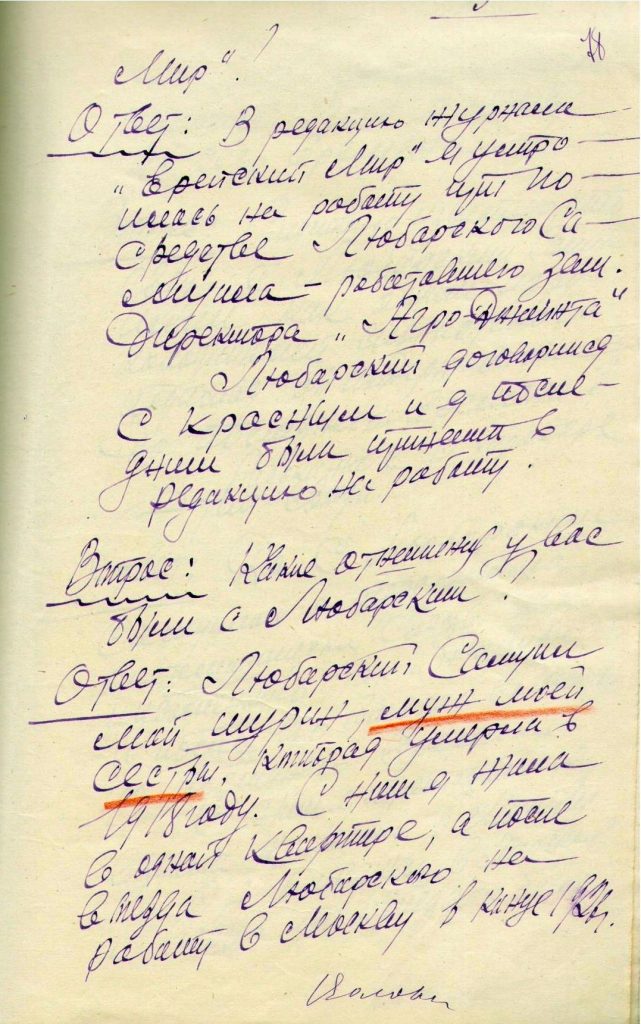 78
Мир"?
Ответ: В редакцию журнала
"Еврейский Мир" я устро-
илась на работу при по-
средстве Любарского Са-
муила – работавшего зам.
Директора "Агро-Джойнта"
Любарский договорился
с Красным и я после-
дним была принята в
редакцию на работу.
Вопрос: Какие отношения у вас
были с Любарским?
Ответ: Любарский Самуил
мой шурин, муж моей
сестры, которая умерла в
1918 году. С ним я жила
в одной квартире, а после
выезда Любарского на
работу в Москву в конце